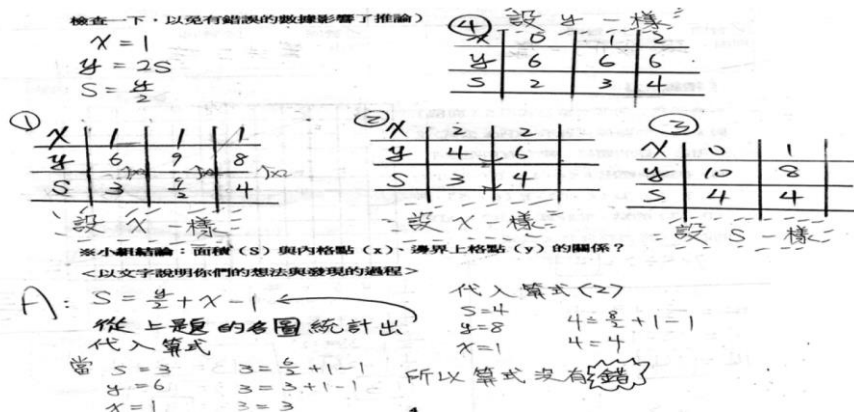 檢查一下,以免有錯誤的數據影響了推論)
x = 1
y = 2S
S = y/2
④ 設 y 一樣
x 0 1 2
y 6 6 6
S 2 3 4
①
x 1 1 1
y 6 9 8
S 3 7/2 4
設 x 一樣
②
x 2 2
y 4 6
S 3 4
設 x 一樣
③
x 0 1
y 10 8
S 4 4
設 S 一樣
※小組結論:面積(S)與內格點(x)、邊界上格點(y)的關係?
<以文字說明你們的想法與發現的過程>
A: S = y/2 + x - 1
從上是題的各圖統計出
代入算式
當 S = 3 3 = 6/2 + 1 - 1
y = 6 3 = 3 + 1 - 1
x = 1 3 = 3
代入算式(2)
S = 4
y = 8 4 = 8/2 + 1 - 1
x = 1 4 = 4
所以算式沒有錯